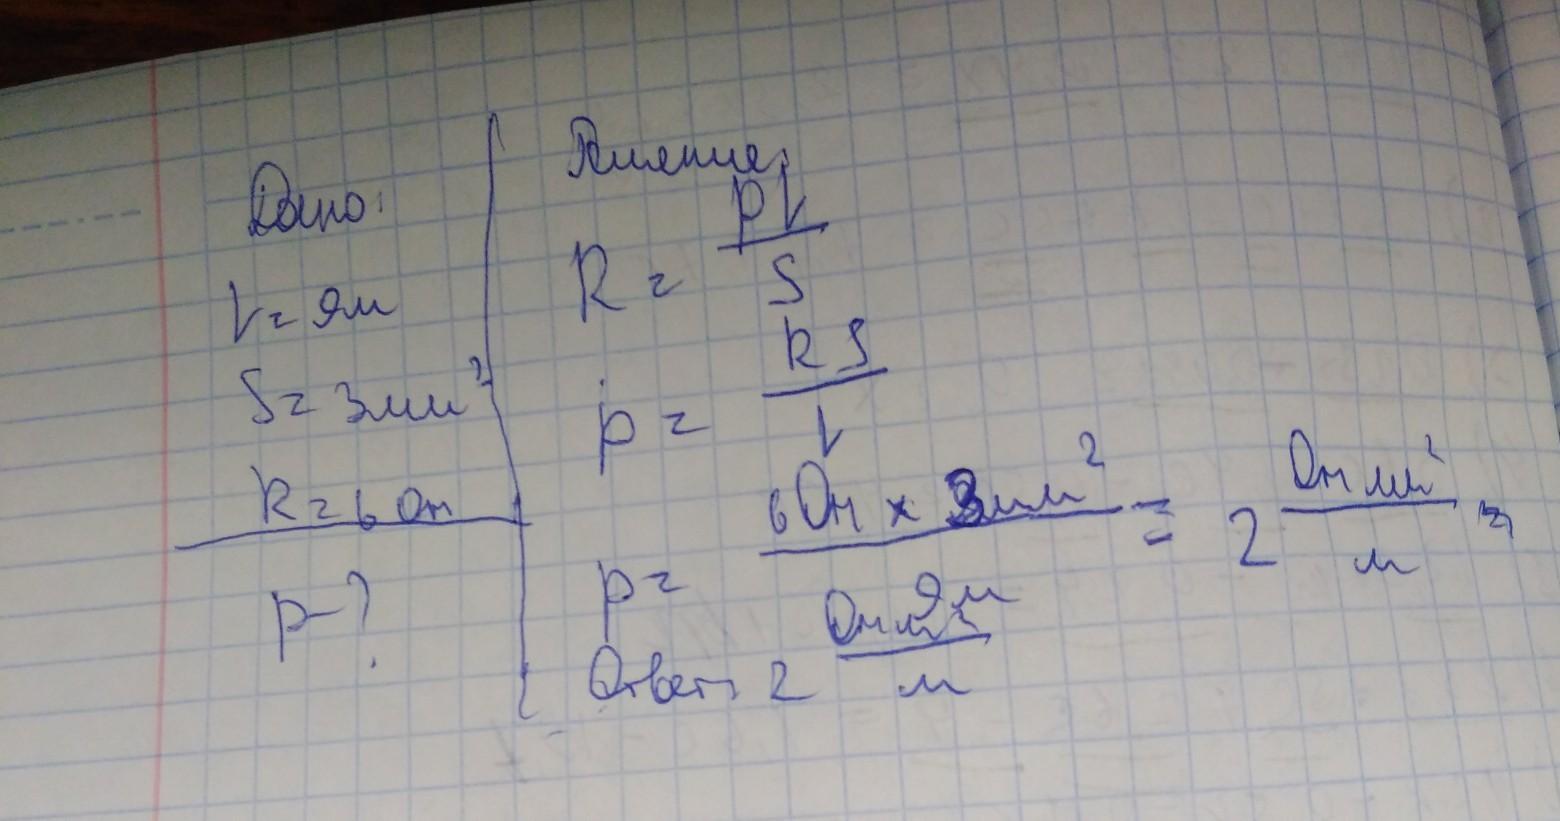 Дано:
l = 9м
S = 3мм²
R = 6 Ом
p - ?
Решение:
R = pl / S
p = RS / l
p = 6Ом × 3мм² / 9м = 2 Ом мм² / м
Ответ: 2 Ом мм² / м